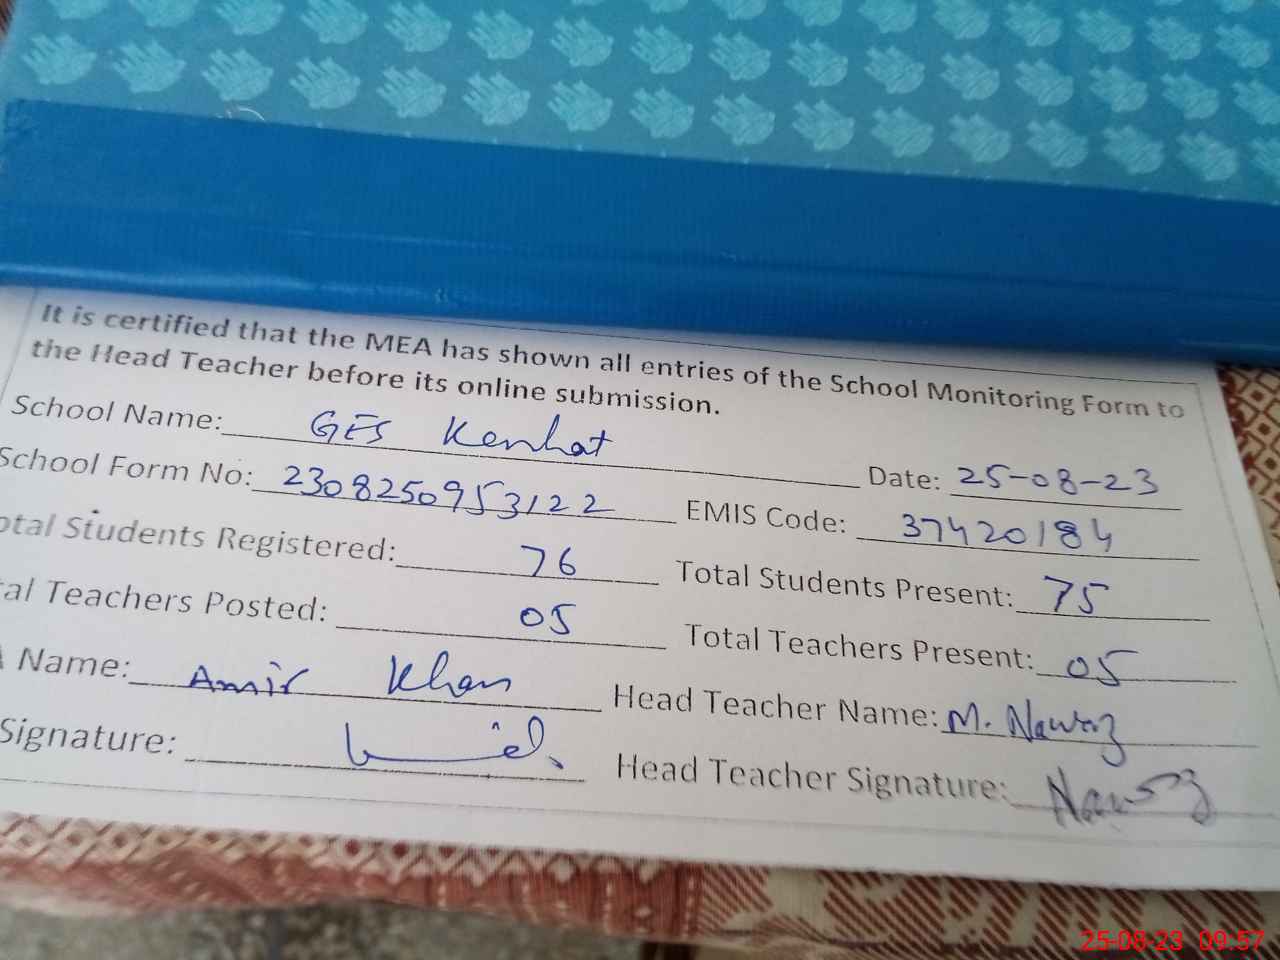 It is certified that the MEA has shown all entries of the School Monitoring Form to
the Head Teacher before its online submission.
School Name: GES Kenhat Date: 25-08-23
School Form No: 2308250953122 EMIS Code: 37420184
otal Students Registered: 76 Total Students Present: 75
tal Teachers Posted: 05 Total Teachers Present: 05
A Name: Amir Khan Head Teacher Name: M. Nawaz
Signature: Head Teacher Signature: Nawaz
25-08-23 09:57